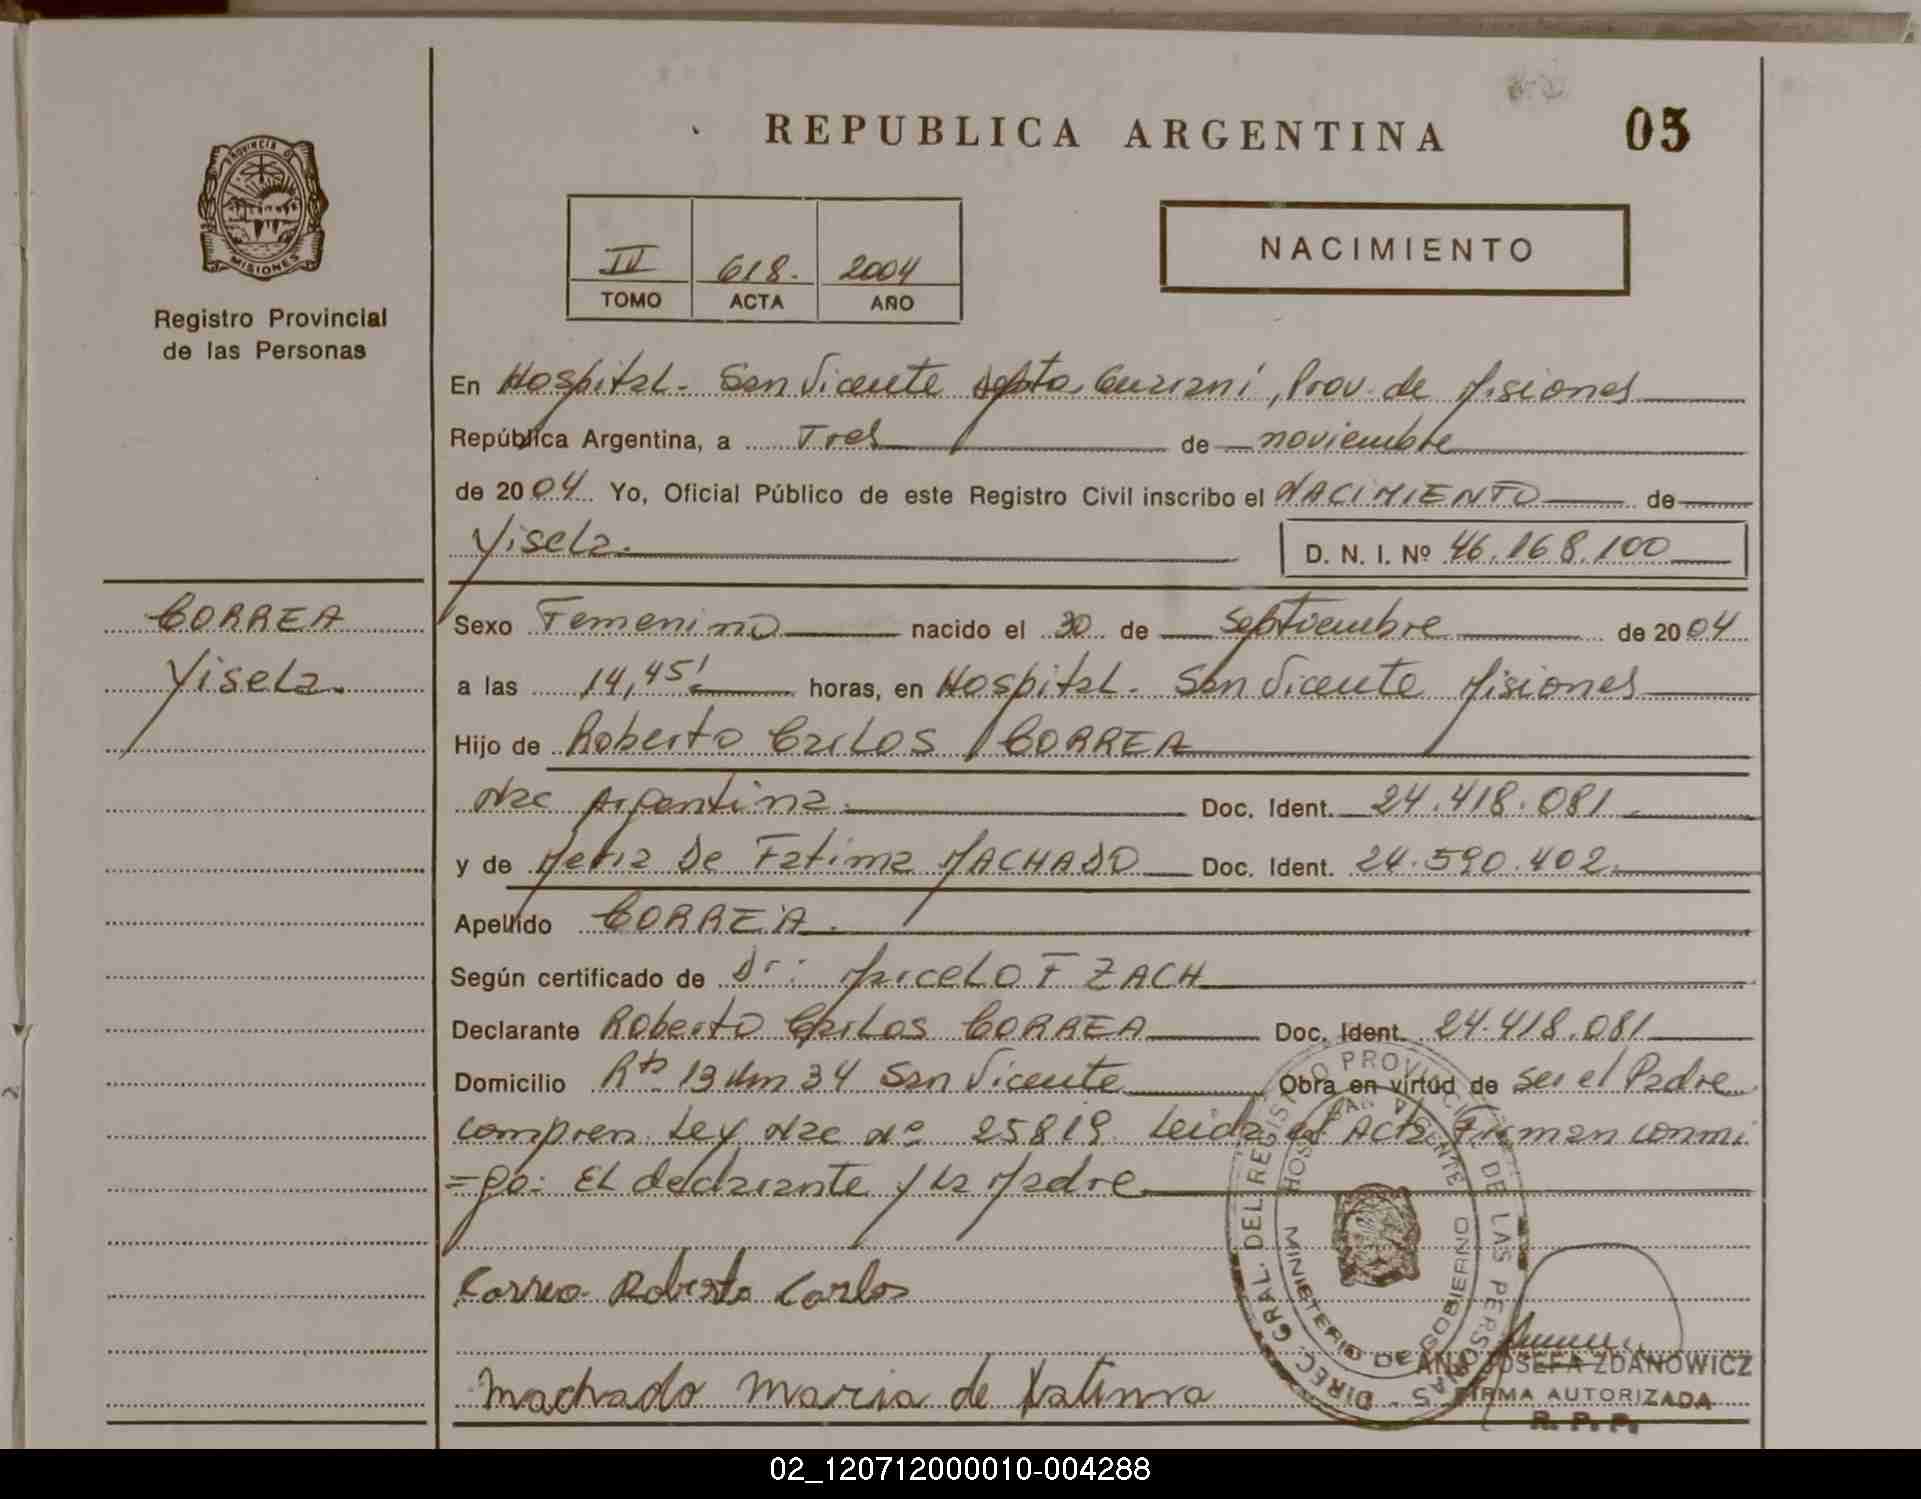 REPUBLICA ARGENTINA
05
PROVINCIA DE
MISIONES
Registro Provincial
de las Personas
IV 618. 2004
TOMO ACTA AÑO
NACIMIENTO
En Hospital - San Vicente Depto. Guaraní, Prov. de Misiones
República Argentina, a Tres de noviembre
de 2004 Yo, Oficial Público de este Registro Civil inscribo el NACIMIENTO de
Yisela. D. N. I. Nº 46.168.100
CORREA
Yisela.
Sexo Femenino nacido el 30 de septiembre de 2004
a las 14,45' horas, en Hospital - San Vicente Misiones
Hijo de Roberto Carlos CORREA
Nac Argentina. Doc. Ident. 24.418.081
y de Maria De Fatima MACHADO Doc. Ident. 24.590.402.
Apellido CORREA.
Según certificado de Dr: Marcelo F ZACH
Declarante Roberto Carlos CORREA Doc. Ident. 24.418.081
Domicilio Rta 13 Km 34 San Vicente Obra en virtud de ser el Padre
compren Ley Nac Nº 25819 Leida el Acta Firman conmi
=go: El declarante y la Madre
Correa Roberto Carlos
Machado Maria de Fatima
DIREC. GRAL. DEL REGISTRO PROVINCIAL DE LAS PERSONAS -
HOSP. SAN VICENTE
MINISTERIO DE GOBIERNO
ANA JOSEFA ZDANOWICZ
FIRMA AUTORIZADA
R. P. P.
02_120712000010-004288